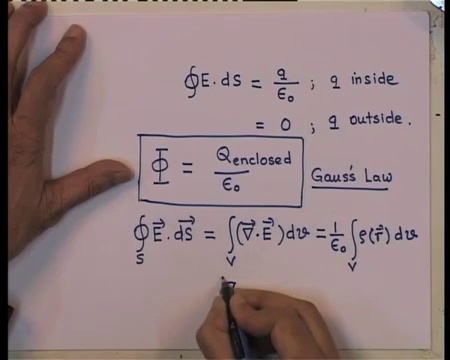 ∮E.dS = q/ε₀ ; q inside
= 0 ; q outside.
Φ = Q enclosed/ε₀ Gauss's Law
∮_S E⃗.dS⃗ = ∫_V (∇⃗.E⃗)dv = 1/ε₀ ∫_V ρ(r⃗) dv
∇